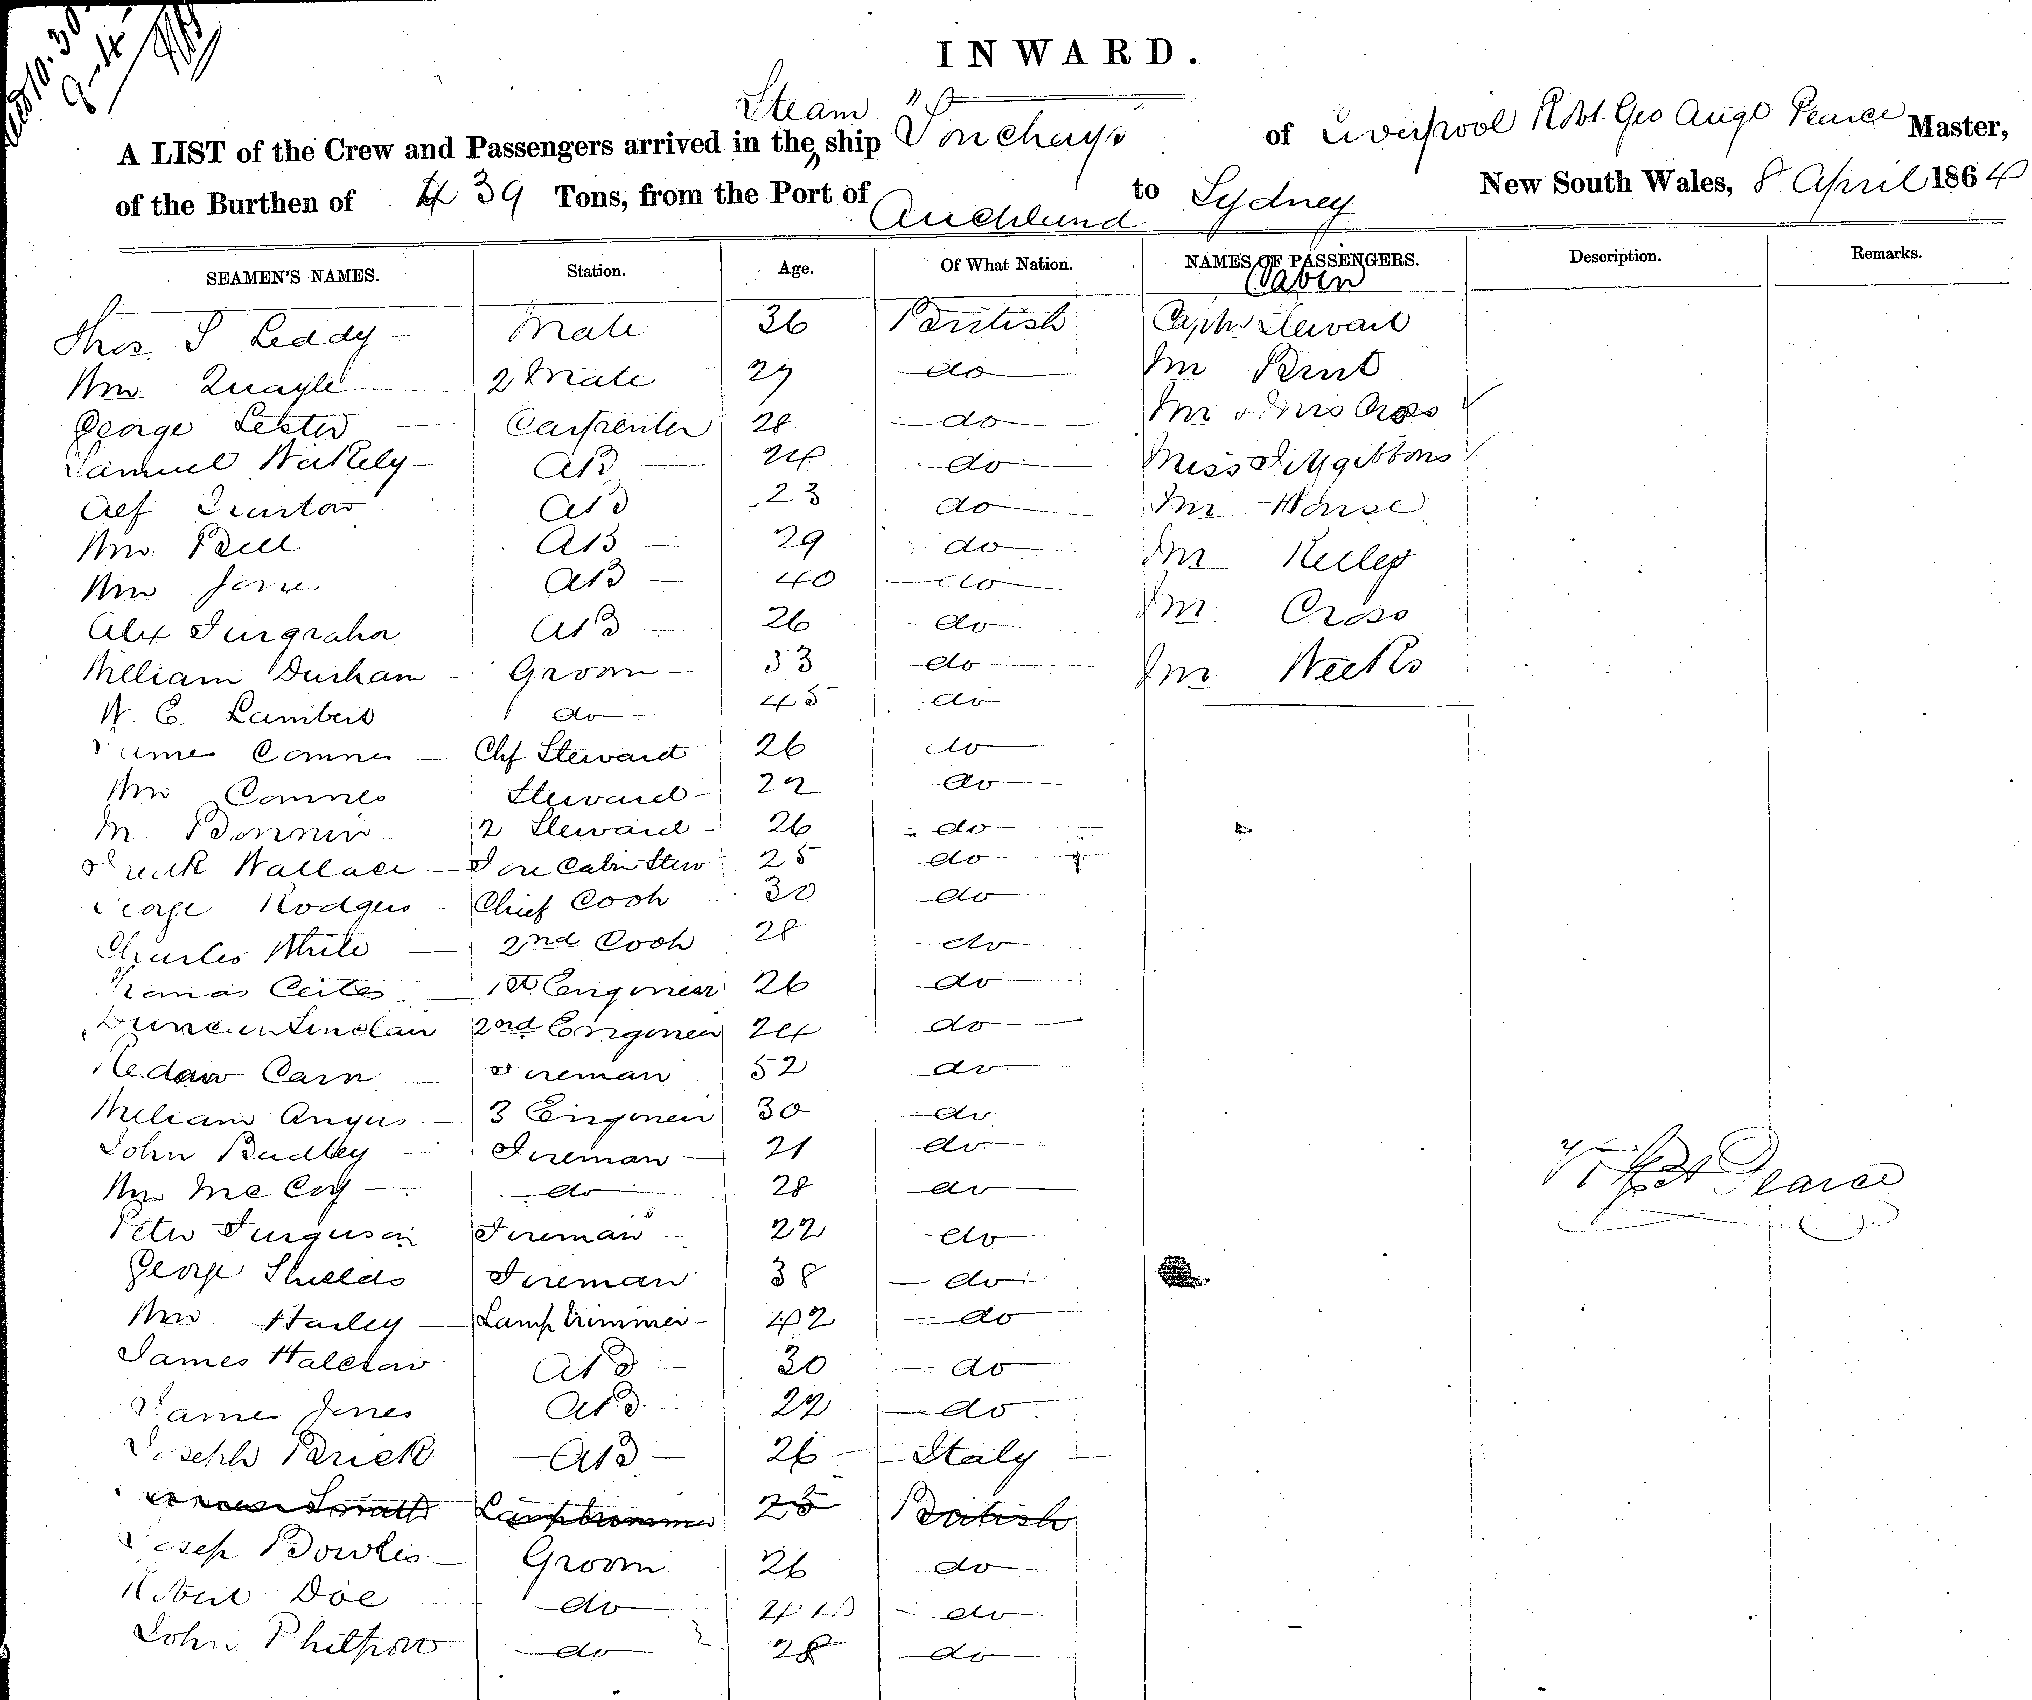 INWARD.
A LIST of the Crew and Passengers arrived in the Steam ship " of Liverpool Robt Geo Augs Pearce Master,
of the Burthen of 439 Tons, from the Port of Auckland to Sydney New South Wales, 8 April 1864
SEAMEN'S NAMES. Station. Age. Of What Nation. NAMES OF PASSENGERS. Description. Remarks.
Cabin
Thos. S Leddy Mate 36 British Capt. Stewart
Wm Quayle 2 Mate 29 do Mr Brut
George Lester Carpenter 28 do Mr & Mrs Cross
Samuel Wakely AB 24 do Miss Fitzgibbons
Alf AB 23 do Mr House
Wm Bell AB 29 do Mr
Wm AB 40 do Mr Cross
Alex AB 26 do Mr Weeks
William Durham Groom 33 do
W. C. Lambert do 45 do
James Chf Steward 26 do
Wm Steward 22 do
M. 2 Steward 26 do
Wallace Fore Cabin Stew 25 do
George Rodgers Chief Cook 30 do
Charles White 2nd Cook 28 do
1st Engineer 26 do
Duncan Sinclair 2nd Engineer 24 do
Carn Fireman 52 do
William Angus 3 Engineer 30 do
John Fireman 21 do
Wm McCoy do 28 do
Peter Furguson Fireman 22 do
George Shields Fireman 38 do
Wm Harley Lamp trimmer 42 do
James Halcrow AB 30 do
James Jones AB 22 do
Joseph Brick AB 26 Italy
Smith Lamptrimmer 25 British
Joseph Bowles Groom 26 do
Robert Doe do do
John Philpow do 28 do
Pearce